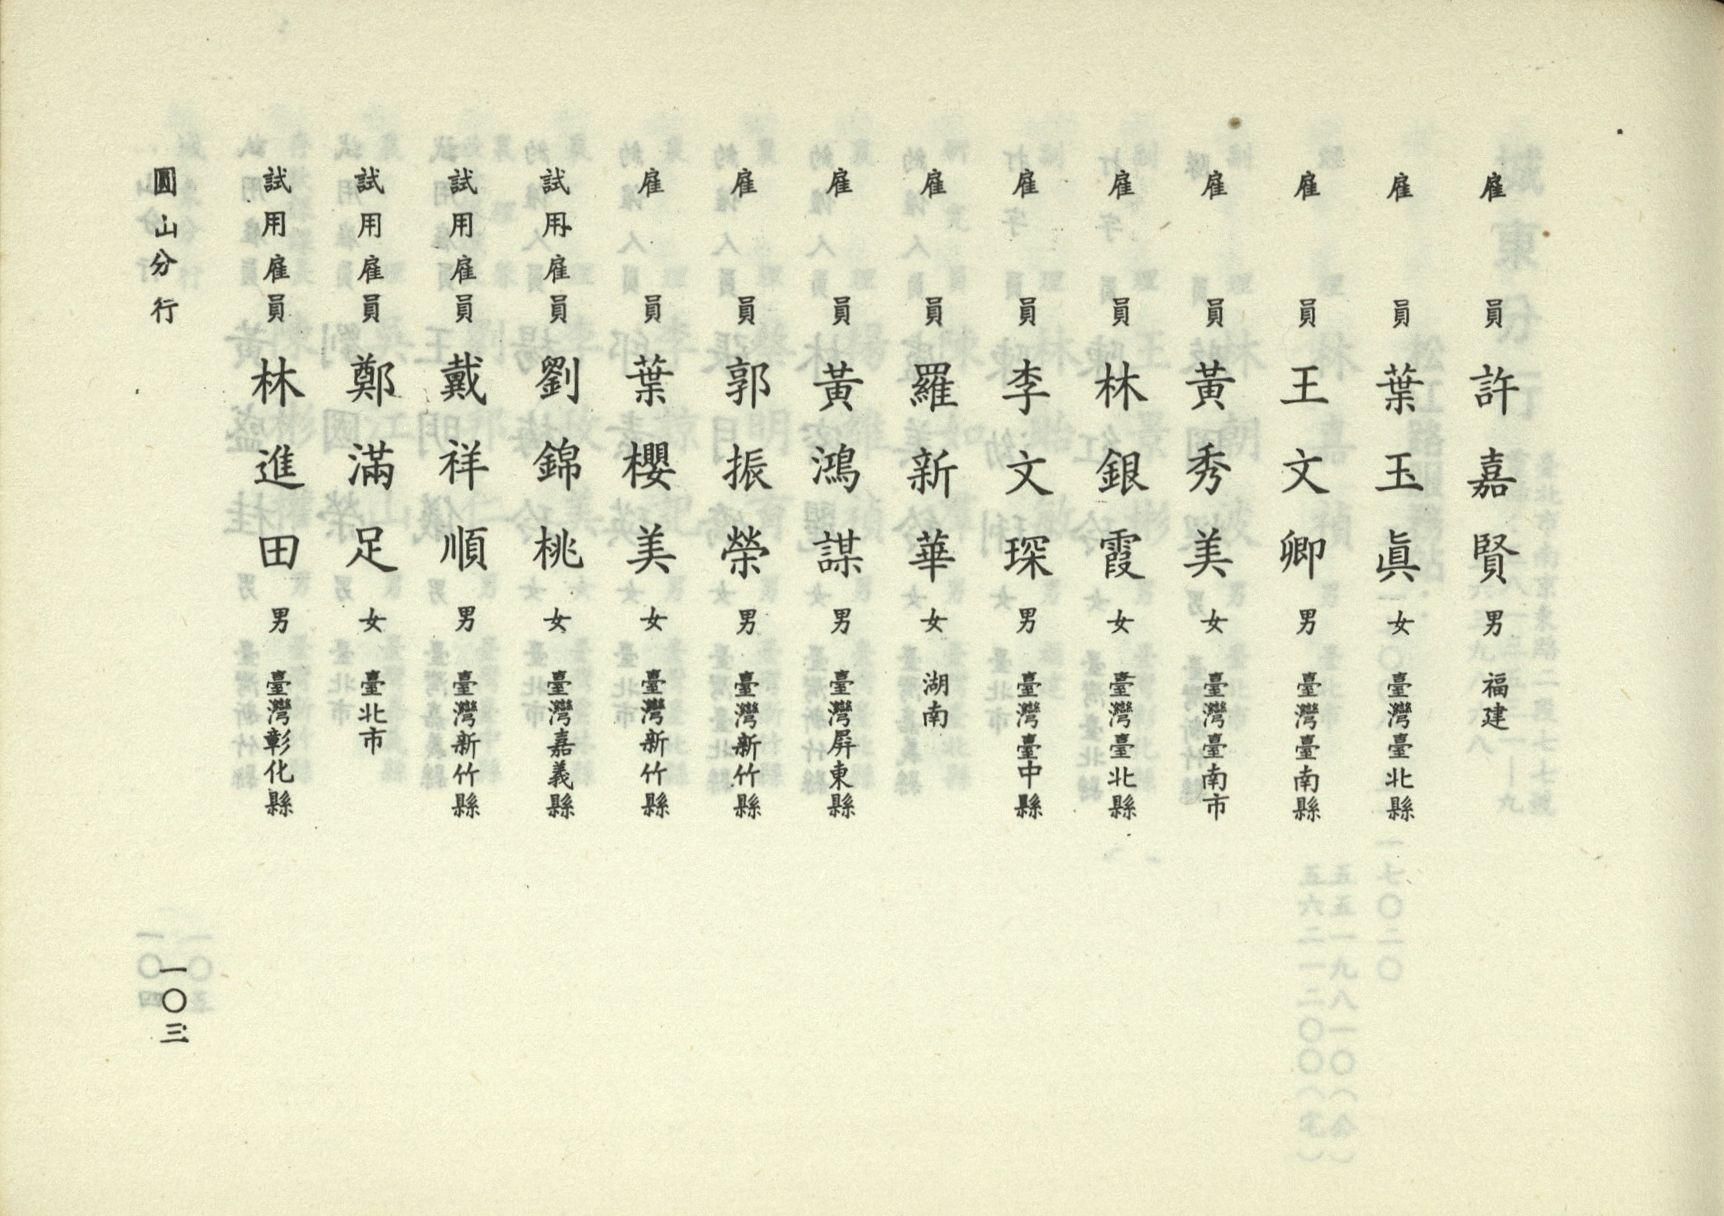 雇員 許嘉賢 男 福建
雇員 葉玉眞 女 臺灣臺北縣
雇員 王文卿 男 臺灣臺南縣
雇員 黃秀美 女 臺灣臺南市
雇員 林銀霞 女 臺灣臺北縣
雇員 李文琛 男 臺灣臺中縣
雇員 羅新華 女 湖南
雇員 黃鴻謀 男 臺灣屏東縣
雇員 郭振榮 男 臺灣新竹縣
雇員 葉櫻美 女 臺灣新竹縣
試用雇員 劉錦桃 女 臺灣嘉義縣
試用雇員 戴祥順 男 臺灣新竹縣
試用雇員 鄭滿足 女 臺北市
試用雇員 林進田 男 臺灣彰化縣
圓山分行
一〇三